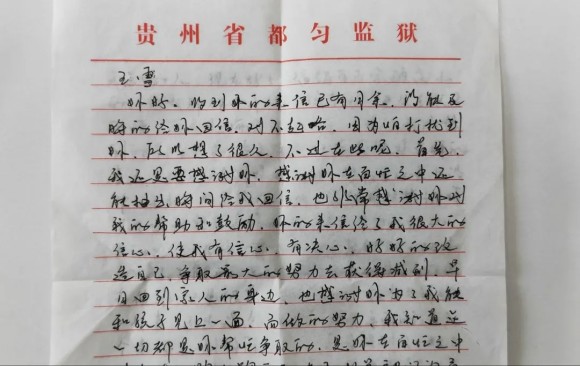 贵州省都匀监狱
王雪
你好。收到你的来信已有月余，没能及
时的给你回信，对不起哈，因为怕打扰到
你，所以想了很久，不过在此呢，首先，
我还是要感谢你，感谢你在百忙之中还
能抽出时间给我回信，也非常感谢你对
我的帮助和鼓励，你的来信给了我很大的
信心，使我有信心，有决心，好好的改
造自己，争取最大的努力去获得减刑，早
日回到家人的身边，也感谢你为了我能
和孩子见上一面，而做的努力，我知道这
一切都是你帮忙争取的，是你在百忙之中